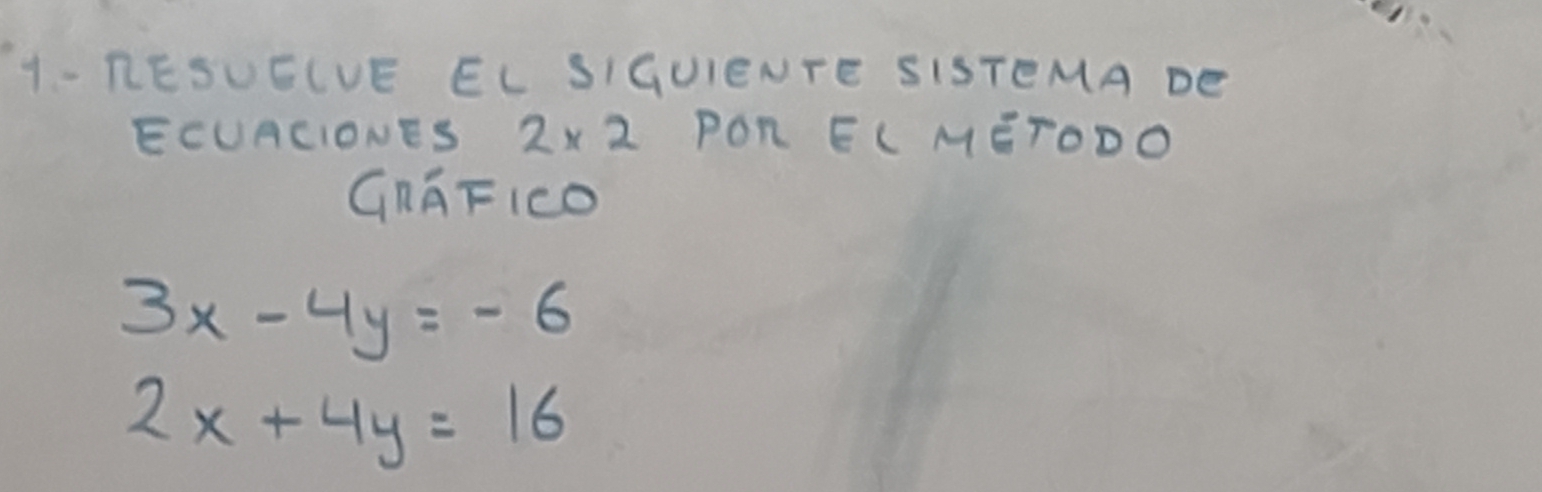 1.- RESUELVE EL SIGUIENTE SISTEMA DE
ECUACIONES 2x2 POR EL MÉTODO
GRÁFICO
3x - 4y = - 6
2x + 4y = 16